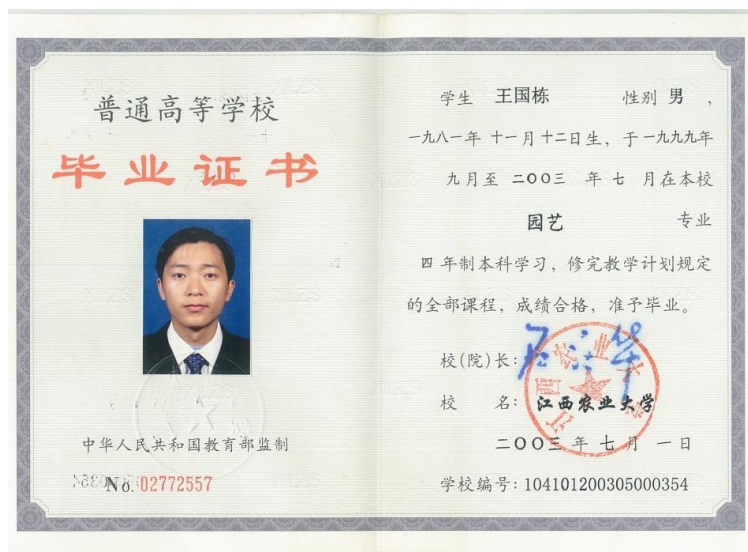 普通高等学校
毕业证书
中华人民共和国教育部监制
No. 02772557
学生 王国栋 性别 男 ,
一九八一年 十一月 十二日生, 于一九九九年
九月至 二〇〇三 年 七 月在本校
园艺 专业
四 年制本科学习, 修完教学计划规定
的全部课程, 成绩合格, 准予毕业。
校(院)长:
校 名: 江西农业大学
二〇〇三 年 七 月 一 日
学校编号: 104101200305000354
江西农业大学